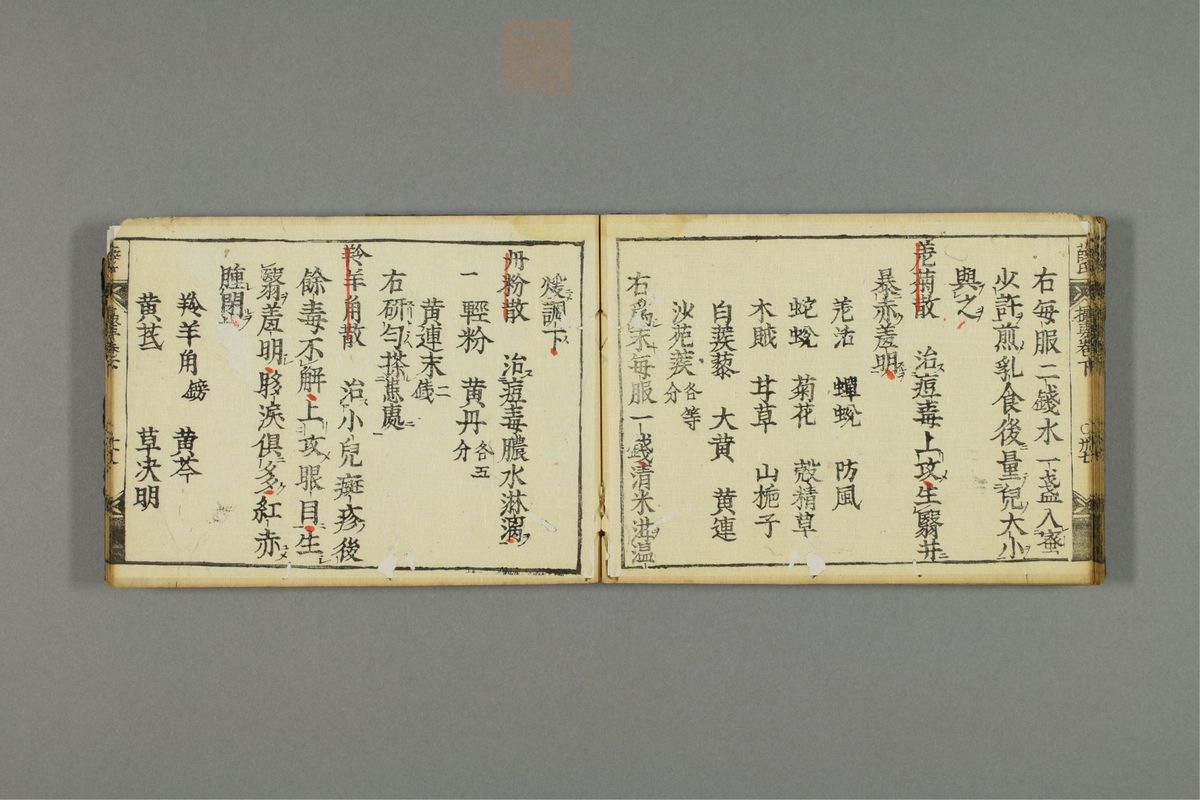 右毎服二錢水一盞入蜜
少許煎乳食後量兒大小
與之
羗菊散 治痘毒上攻生翳并
暴赤羞明
羗活 蟬蛻 防風
蛇蛻 菊花 殼精草
木賊 甘草 山梔子
白蒺藜 大黄 黄連
沙苑蒺 各等分
右爲末毎服一錢清米泔温
煖調下
丹粉散 治痘毒膿水淋漓
一 輕粉 黄丹 各五分
黄連末 二錢
右研勻搽患處
羚羊角散 治小兒斑疹後
餘毒不解上攻眼目生
翳羞明眵淚俱多紅赤
腫閉
羚羊角 鎊 黄芩
黄芪 草决明